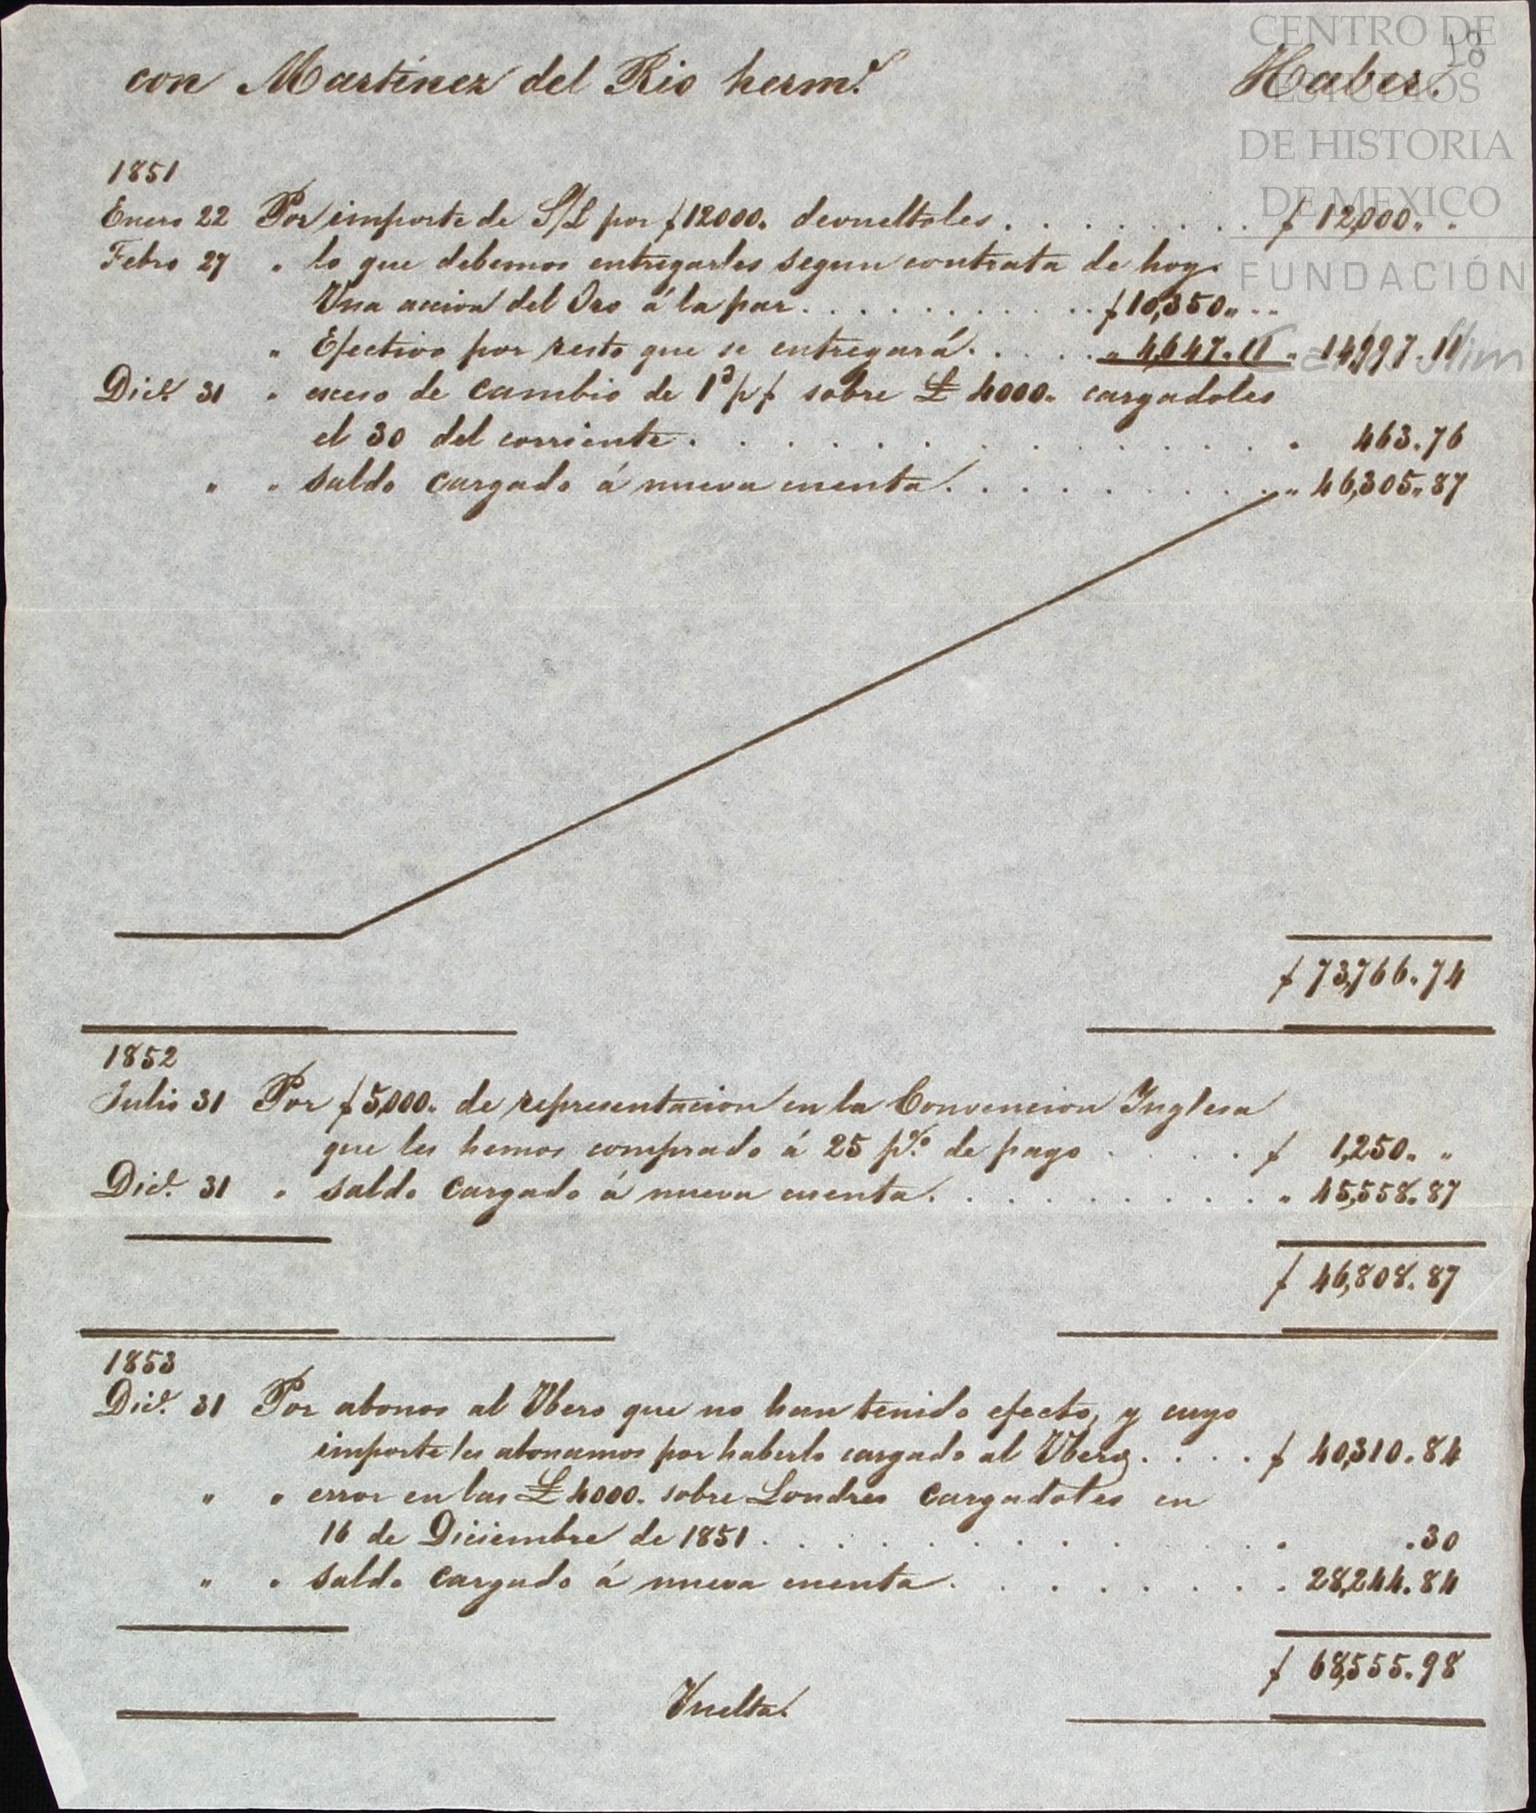 CENTRO DE
ESTUDIOS
DE HISTORIA
DE MEXICO
FUNDACIÓN
Carlos Slim
18
con Martinez del Rio herm.s Haber.
1851
Enero 22 Por importe de S/L por $12000. devueltoles . . . . . . . $ 12,000. "
Febro 27 " lo que debemos entregarles segun contrata de hoy.
Una accion del Oro á la par . . . . . . . . . . $10,350 " "
" Efectivo por resto que se entregará . . . . " 4,647.11 " 14,997.11
Dic.e 31 " exceso de cambio de 1ª p$ sobre £ 4000. cargadoles
el 30 del corriente . . . . . . . . . . . . . " 463.76
" " saldo cargado á nueva cuenta . . . . . . . . . " 46,305.87
$ 73,766.74
1852
Julio 31 Por $5,000. de representacion en la Convencion Inglesa
que les hemos comprado á 25 p.% de pago . . . . $ 1,250. "
Dic.e 31 " saldo cargado á nueva cuenta . . . . . . . . . " 45,558.87
$ 46,808.87
1853
Dic.e 31 Por abonos al Ubero que no han tenido efecto, y cuyo
importe les abonamos por haberlo cargado al Ubero . . . . $ 40,310.84
" " error en las £4000. sobre Londres cargadoles en
16 de Diciembre de 1851 . . . . . . . . . . . . . " .30
" " saldo cargado á nueva cuenta . . . . . . . . " 28,244.84
$ 68,555.98
Vuelta.